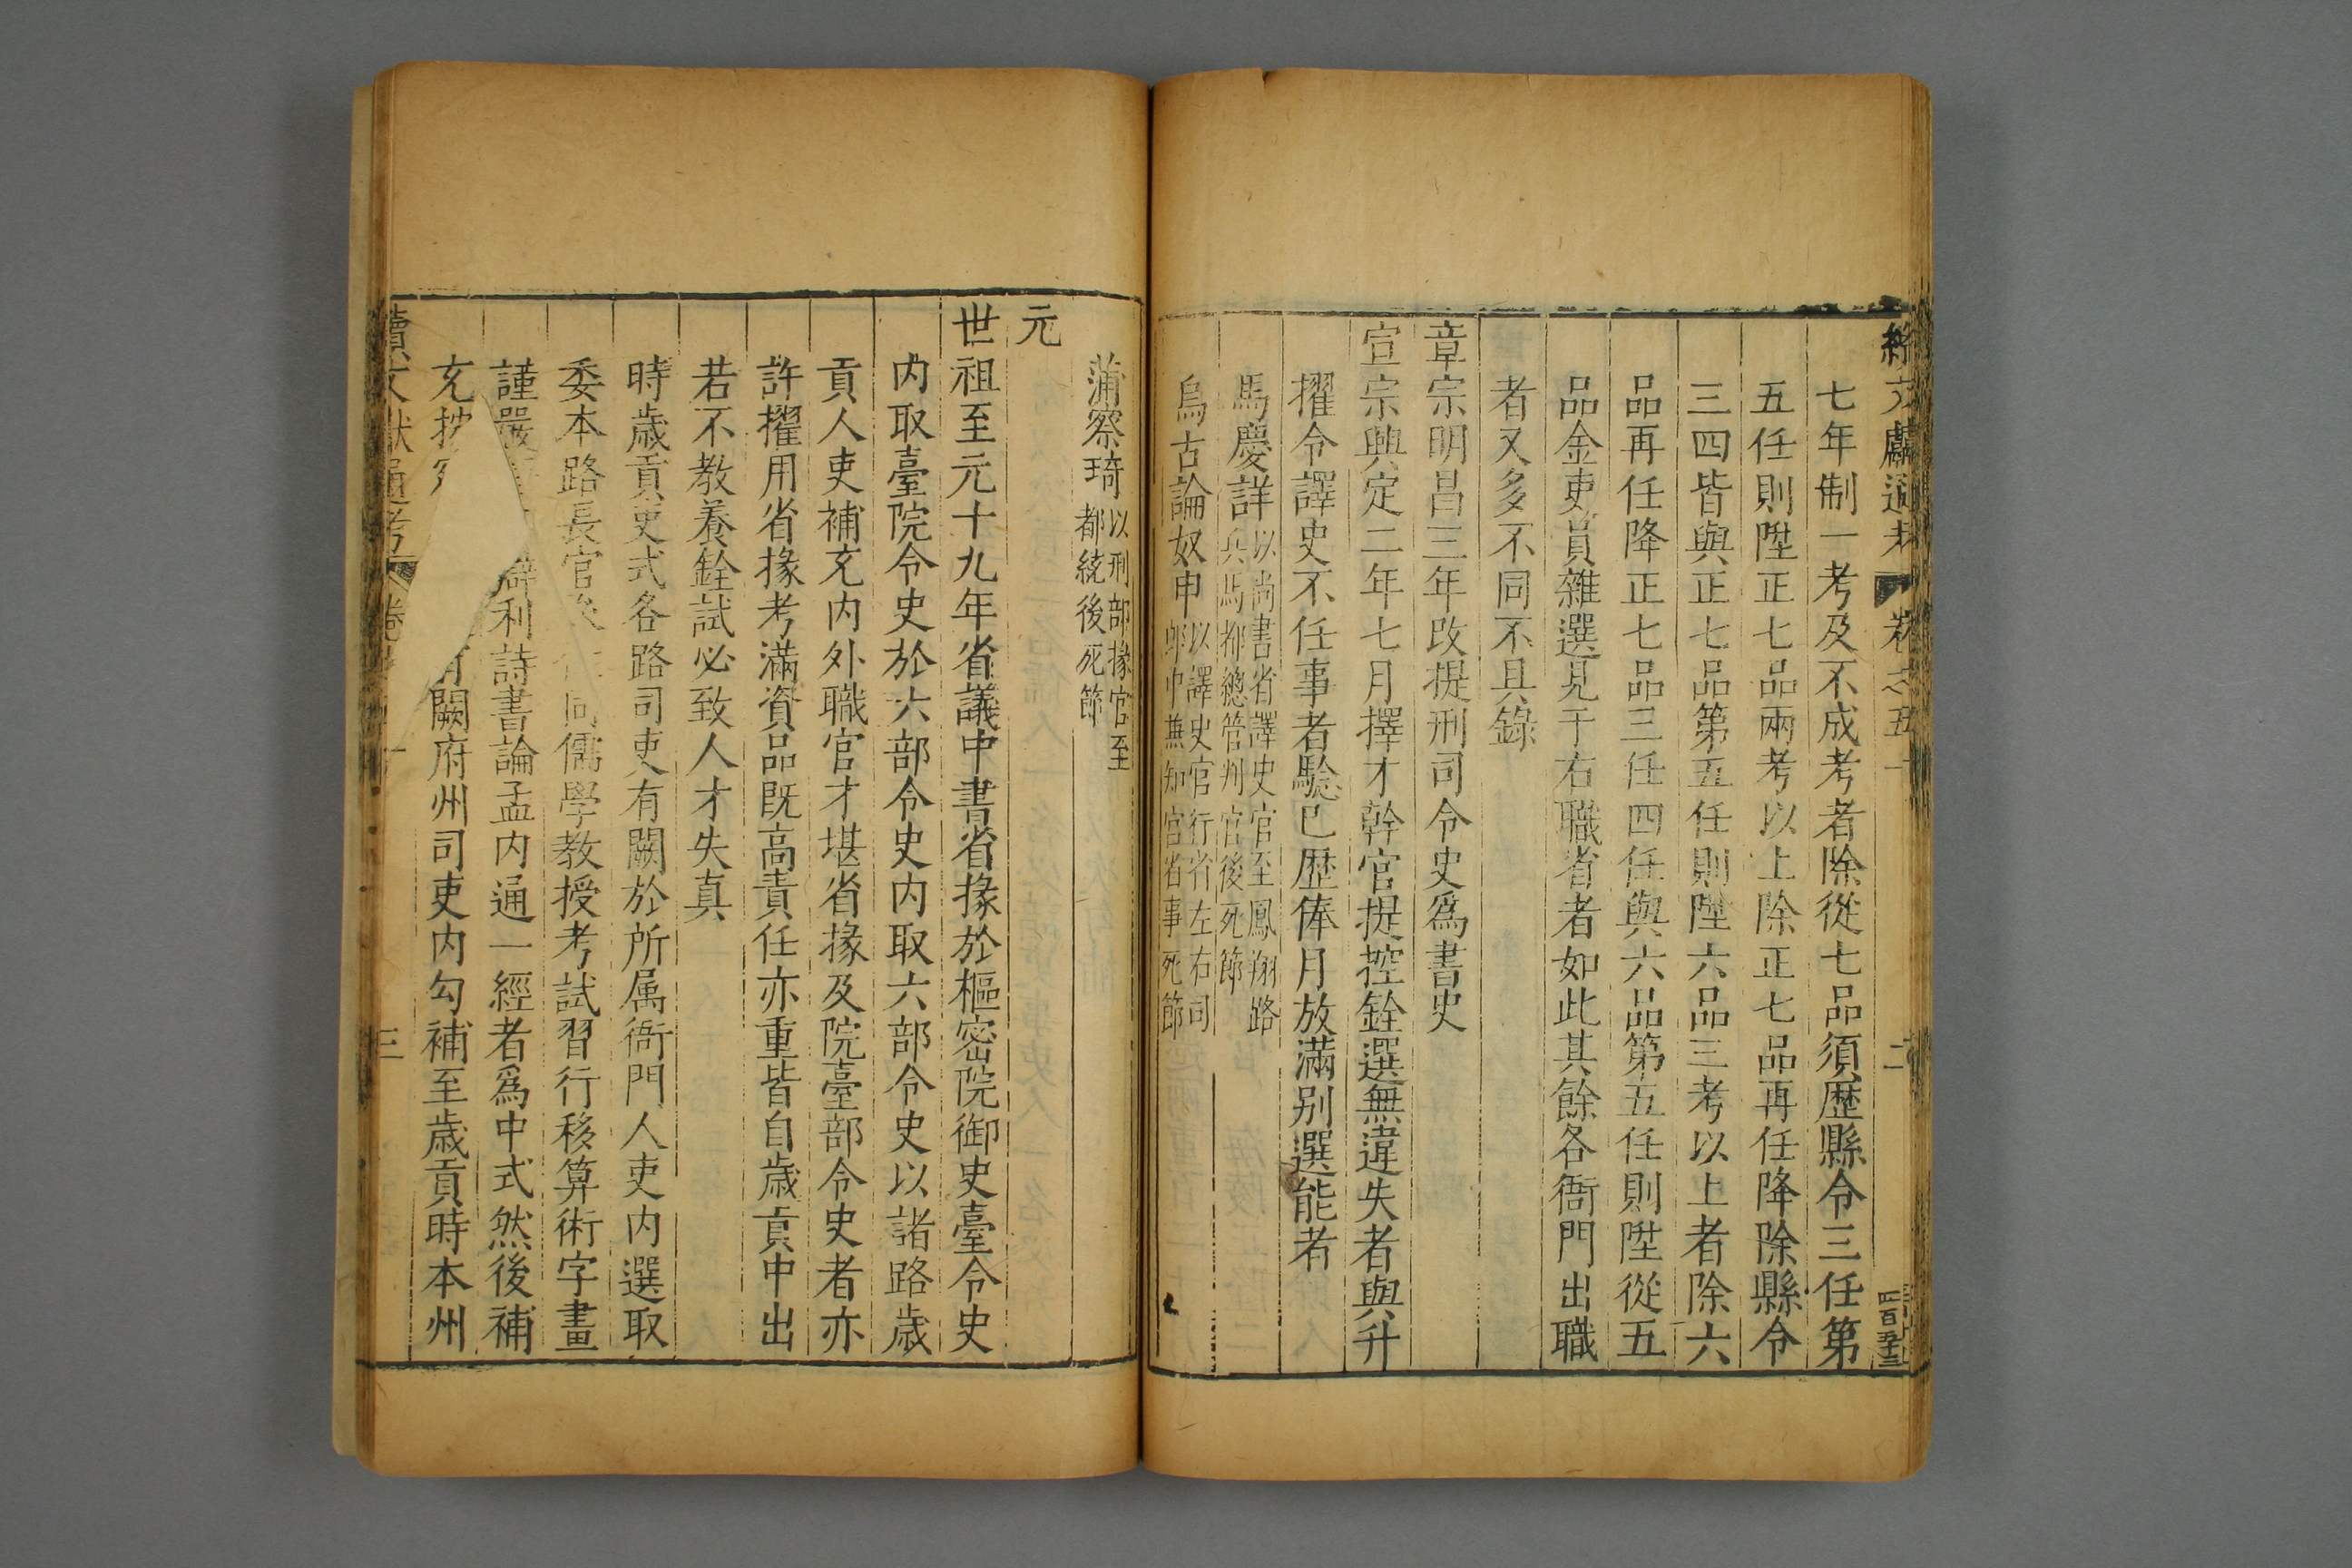 續文獻通考 卷之五十 二
七年制一考及不成考者除從七品須歴縣令三任第
五任則陞正七品兩考以上除正七品再任降除縣令
三四皆與正七品第五任則陞六品三考以上者除六
品再任降正七品三任四任與六品第五任則陞從五
品金吏員雜選見于右職省者如此其餘各衙門出職
者又多不同不具錄
章宗明昌三年改提刑司令史爲書史
宣宗興定二年七月擇才幹官提控銓選無違失者與升
擢令譯史不任事者驗已歴俸月放滿别選能者
馬慶詳以尚書省譯史官至鳳翔路兵馬都總管判官後死節
烏古論奴申以譯史官行省左右司郎中兼知宫省事死節
蒲察琦以刑部掾官至都統後死節
元
世祖至元十九年省議中書省掾於樞密院御史臺令史
内取臺院令史於六部令史内取六部令史以諸路歳
貢人吏補充内外職官才堪省掾及院臺部令史者亦
許擢用省掾考滿資品既高責任亦重皆自歳貢中出
若不教養銓試必致人才失真
時歳貢吏式各路司吏有闕於所属衙門人吏内選取
委本路長官 同儒學教授考試習行移算術字畫
謹嚴 辯利詩書論孟内通一經者爲中式然後補
充按 有闕府州司吏内勾補至歳貢時本州
續文獻通考 卷 三